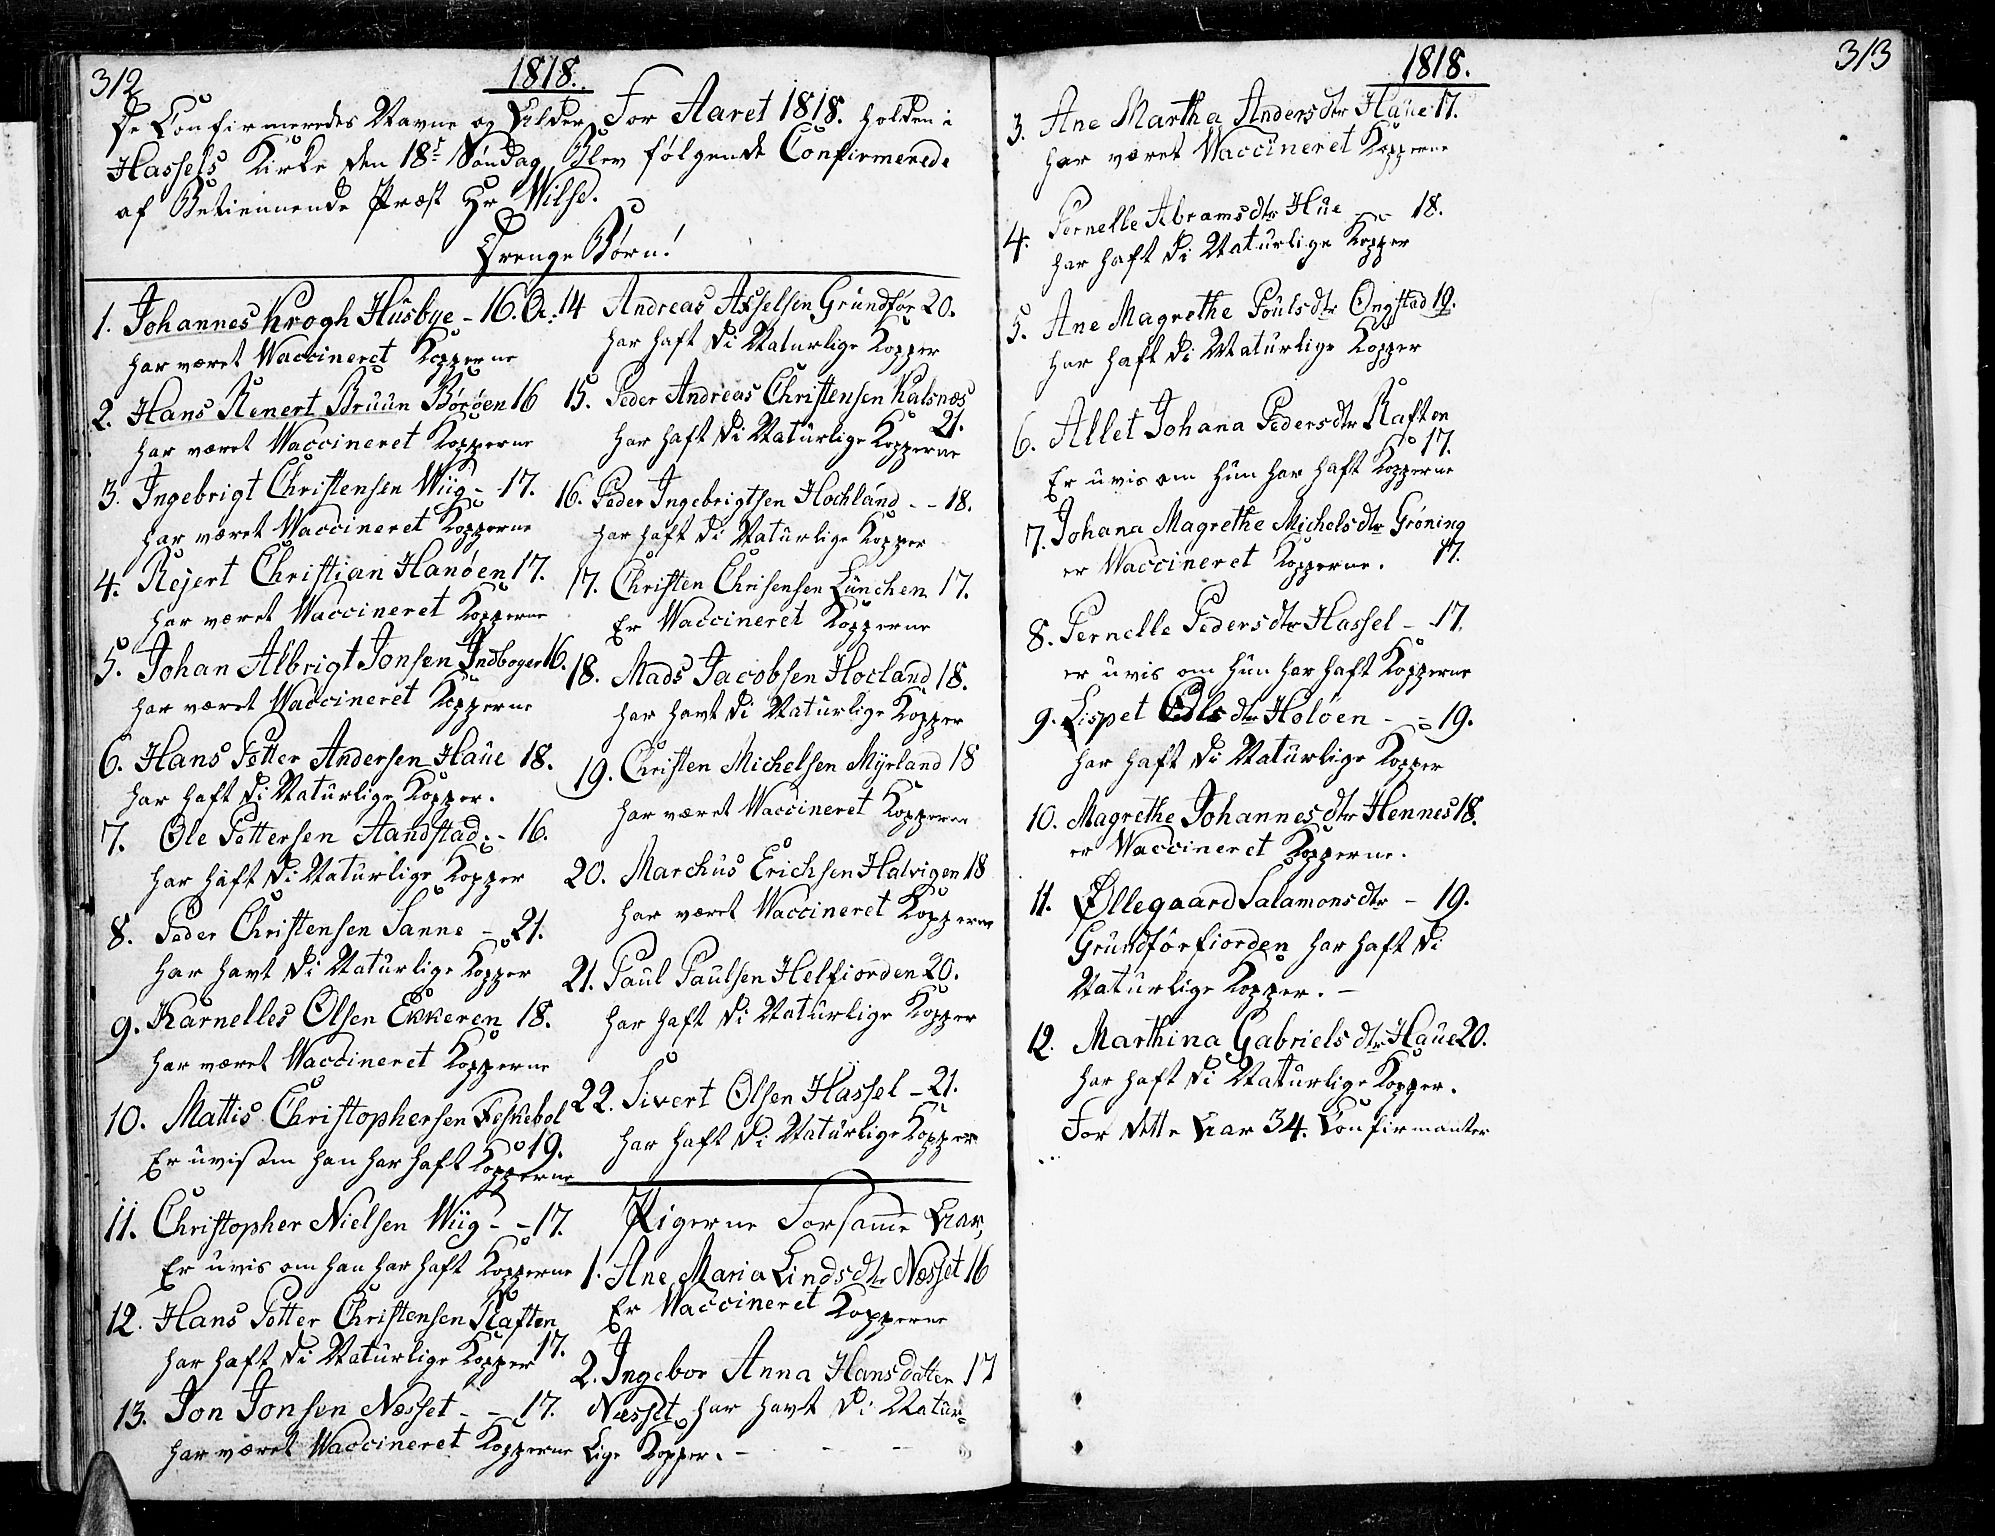 312
1818.
De Confirmeredes Navne og Alder For Aaret 1818. holden i
Hassels Kirke den 18de Søndag, Blev følgende Confirmerede
af Betienende Præst Hr Wilse.
Drenge Børn!
1. Johannes Krogh Husbye - 16. A:
har været Waccineret Kopperne
2. Hans Renert Bruun Børøen 16
har været Waccineret Kopperne
3. Ingebrigt Christensen Wiig - 17.
har været Waccineret Kopperne
4. Rejert Christian Hanøen 17.
har været Waccineret Kopperne
5. Johan Albrigt Jonsen Indboger 16.
har været Waccineret Kopperne
6. Hans Petter Andersen Haue 18.
har haft di Naturlige Kopper.
7. Ole Pettersen Aandstad. - 16.
har haft di Naturlige Kopper
8. Peder Christensen Sanne - 21.
har havt di Naturlige Kopper
9. Karnelles Olsen Ekkeren 18.
har været Waccineret Kopperne
10. Mattis Christophersen Feskebol
19.
Er uvis om han har haft Kopperne
11. Christopher Nielsen Wiig - - 17.
Er uvis om han har haft Kopperne
12. Hans Petter Christensen Raften
17.
har haft di Naturlige Kopper
13. Jon Jonsen Næsset - - 17.
har været Waccineret Kopperne
14 Andreas Asselsen Grundfør 20.
har haft di Naturlige Kopper
15. Peder Andreas Christensen Kalsnæs
21.
har haft di Naturlige Kopperne
16. Peder Ingebrigtsen Hochland - - 18.
har haft di Naturlige Kopper
17. Christen Chrisensen Lunchen 17.
Er Waccineret Kopperne
18. Mads Jacobsen Hocland 18.
har havt di Naturlige Kopper
19. Christen Michelsen Myrland 18
har været Waccineret Kopperne
20. Marchus Erichsen Halvigen 18
har været Waccineret Kopperne
21. Paul Paulsen Helfiorden 20.
har haft di Naturlige Kopper
22. Sivert Olsen Hassel - 21.
har haft di Naturlige Kopper
Pigerne For samme Aar,
1. Ane Maria Lindsdtr Næsset 16
Er Waccineret Kopperne
2. Ingebor Anna Hansdatter 17
Næsset har havt di Natur=
Lige Kopper. -
1818.
313
3. Ane Martha Andersdtr Haue 17.
har været Waccineret Kopperne
4. Pernelle Abramsdtr Hue - 18.
har haft di Naturlige Kopper
5. Ane Magrethe Poulsdtr Ongstad 19.
har haft di Naturlige Kopper
6. Allet Johana Pedersdtr Raften
17.
Er uvis om hun har haft Kopperne
7. Johana Magrethe Michelsdtr Grøning
er Waccineret Kopperne. 17.
8. Pernelle Pedersdtr Hassel - 17.
er uvis om hun har haft Kopperne
9. Lispet dtr Holøen - - 19.
har haft di Naturlige Kopper
10. Magrethe Johannesdtr Hennes 18.
er Waccineret Kopperne.
11. Øllegaard Salamonsdtr - 19.
Grundførfiorden har haft di
Naturlige Kopper. -
12. Marthina Gabrielsdtr Haue 20.
har haft di Naturlige Kopper.
For dette Aar 34. Confirmanter